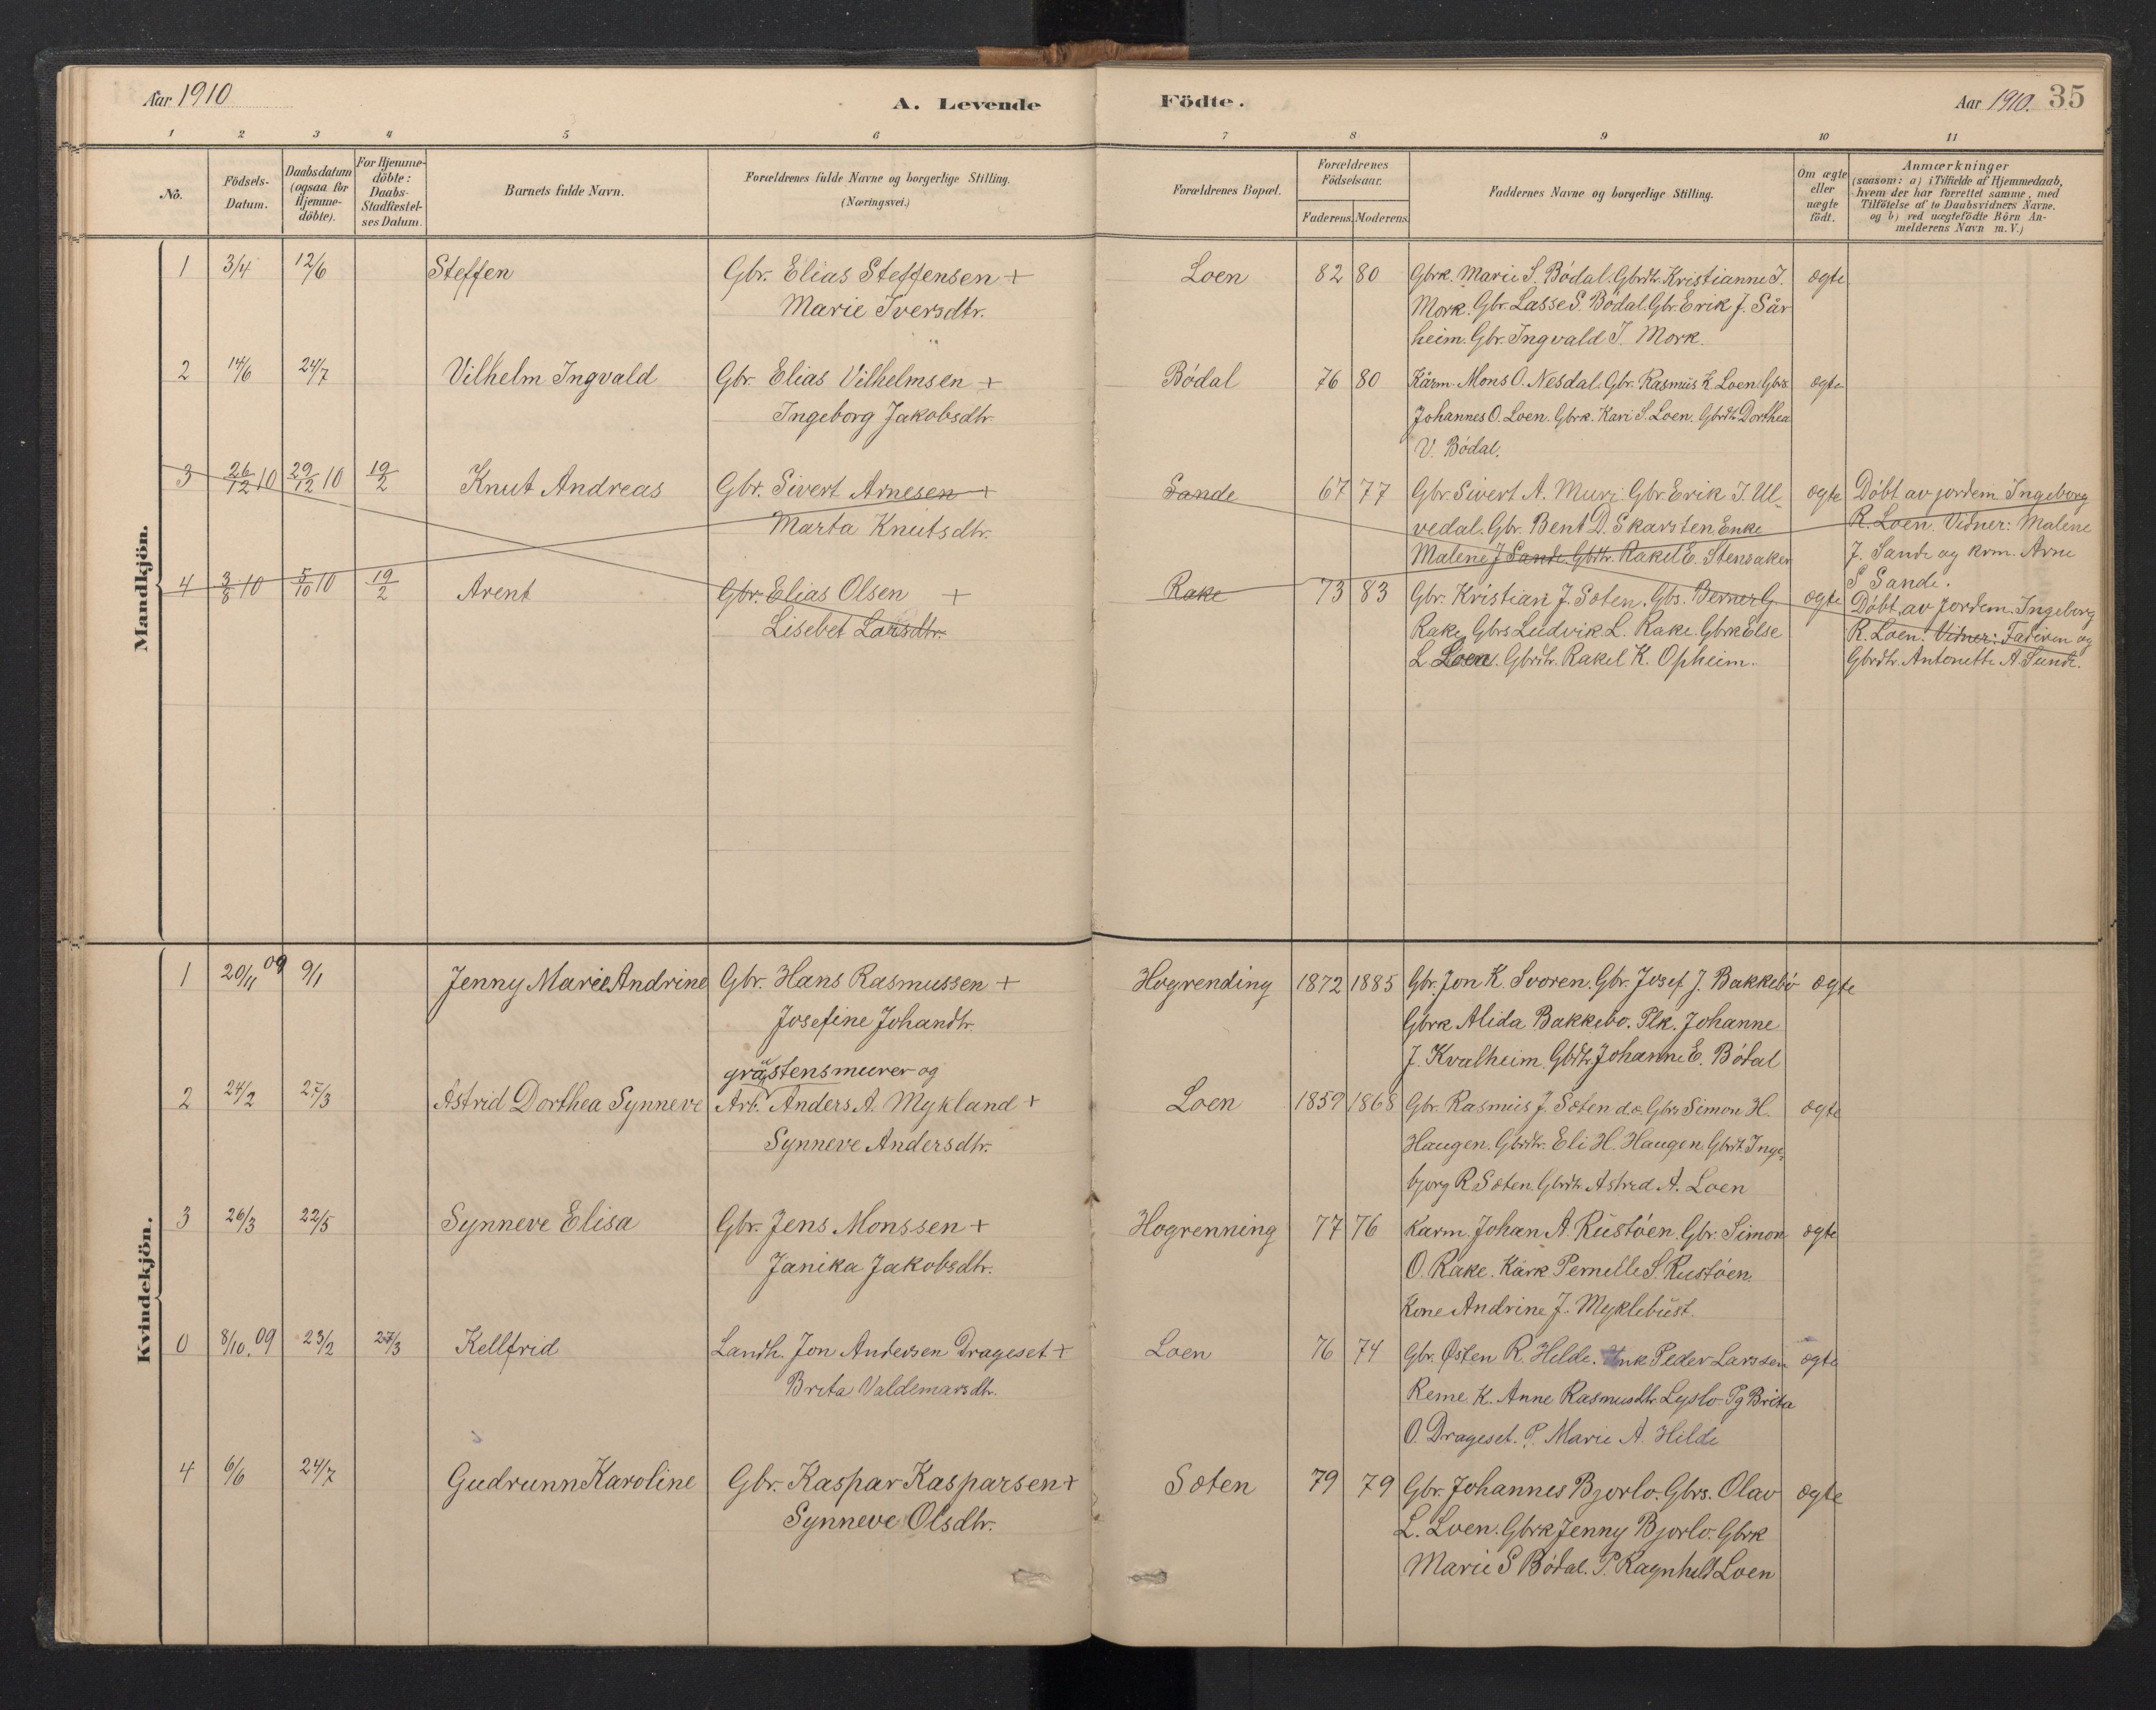 Aar 1910
A. Levende Födte.
Aar 1910. 35
1 2 3 4 5 6 7 8 9 10 11
No.
Födsels-Datum.
Daabsdatum (ogsaa for Hjemme-döbte).
For Hjemme-döbte: Daabs-Stadfæstel-ses Datum.
Barnets fulde Navn.
Forældrenes fulde Navne og borgerlige Stilling.
(Næringsvei.)
Forældrenes Bopæl.
Forældrenes Födselsaar.
Faderens. Moderens.
Faddernes Navne og borgerlige Stilling.
Om ægte eller uægte födt.
Anmærkninger
(saasom: a) i Tilfælde af Hjemmedaab,
hvem der har forrettet samme, med
Tilföielse af to Daabsvidners Navne,
og b) ved uægtefödte Börn An-
melderens Navn m. V.)
Mandkjön.
1 3/4 12/6 Steffen Gbr. Elias Steffensen + Loen 82 80 Gbrk. Marie S. Bödal. Gbrdtr. Kristianne I. ægte
Marie Iversdtr. Mork. Gbr. Lasse S. Bödal. Gbr. Erik J. Sår
heim. Gbr. Ingvald I. Mork.
2 14/6 24/7 Vilhelm Ingvald Gbr. Elias Vilhelmsen + Bödal 76 80 Kårm. Mons O. Nesdal. Gbr. Rasmus K. Loen. Gbrs. ægte
Ingeborg Jakobsdtr. Johannes O. Loen. Gbrk. Kari S. Loen. Gbrdtr. Dorthea
V. Bödal.
3 26/12 10 29/12 10 19/2 Knut Andreas Gbr. Sivert Arnesen + Sande 67 77 Gbr. Sivert A. Muri. Gbr. Erik I. Ul- ægte Döbt av jordem. Ingeborg
Marta Knutsdtr. vedal. Gbr. Bent D. Skarsten. Enke R. Loen. Vidner: Malene
Malene J. Sande. Gbdtr. Rakel E. Stensaker J. Sande og krm. Arne
S. Sande.
4 3/8 10 5/10 10 19/2 Arent Gbr. Elias Olsen + Rake 73 83 Gbr. Kristian J. Sæten. Gbs. Berner G. ægte Döbt av Jordem. Ingeborg
Lisebet Larsdtr. Rake. Gbrs Ludvik L. Rake. Gbrk Else R. Loen. Vidner: Faderen og
L Loen. Gbrdtr. Rakel K. Opheim. Gbrdtr. Antonette A. Sunde.
Kvindekjön.
1 20/11 09 9/1 Jenny Marie Andrine Gbr. Hans Rasmussen + Hogrending 1872 1885 Gbr. Jon K. Svoren. Gbr. Josef J. Bakkebö ægte
Josefine Johandtr. Gbrk Alida Bakkebö. Plk. Johanne
J. Kvalheim. Gbdtr. Johanne E. Bödal
gråstensmurer og
2 24/2 27/3 Astrid Dorthea Synneve Arb. Anders A. Mykland + Loen 1859 1868 Gbr. Rasmus J. Sæten d.æ. Gbrs Simon H. ægte
Synneve Andersdtr. Haugen. Gbrdtr. Eli H. Haugen. Gbrdt. Inge-
bjorg R Sæten. Gbrdtr Astrid A. Loen
3 26/3 22/5 Synneve Elisa Gbr. Jens Monssen + Hogrenning 77 76 Karm. Johan A. Rustöen. Gbr. Simon ægte
Janika Jakobsdtr. O. Rake. Kark Pernelle S. Rustöen.
Kone Andrine J. Myklebust.
0 8/10. 09 23/2 27/3 Kellfrid Landh. Jon Andersen Drageset + Loen 76 74 Gbr. Østen R. Hilde. Unk Peder Larssen ægte
Brita Valdemarsdtr. Reme. K. Anne Rasmusdtr. Lyslo. Pg Brita
O. Drageset. P. Marie A. Hilde
4 6/6 24/7 Gudrunn Karoline Gbr. Kaspar Kasparsen + Sæten 79 79 Gbr. Johannes Bjorlo. Gbrs. Olav ægte
Synneve Olsdtr. L. Loen. Gbrk Jenny Bjorlo. Gbrk
Marie S Bödal. P. Ragnhild Loen